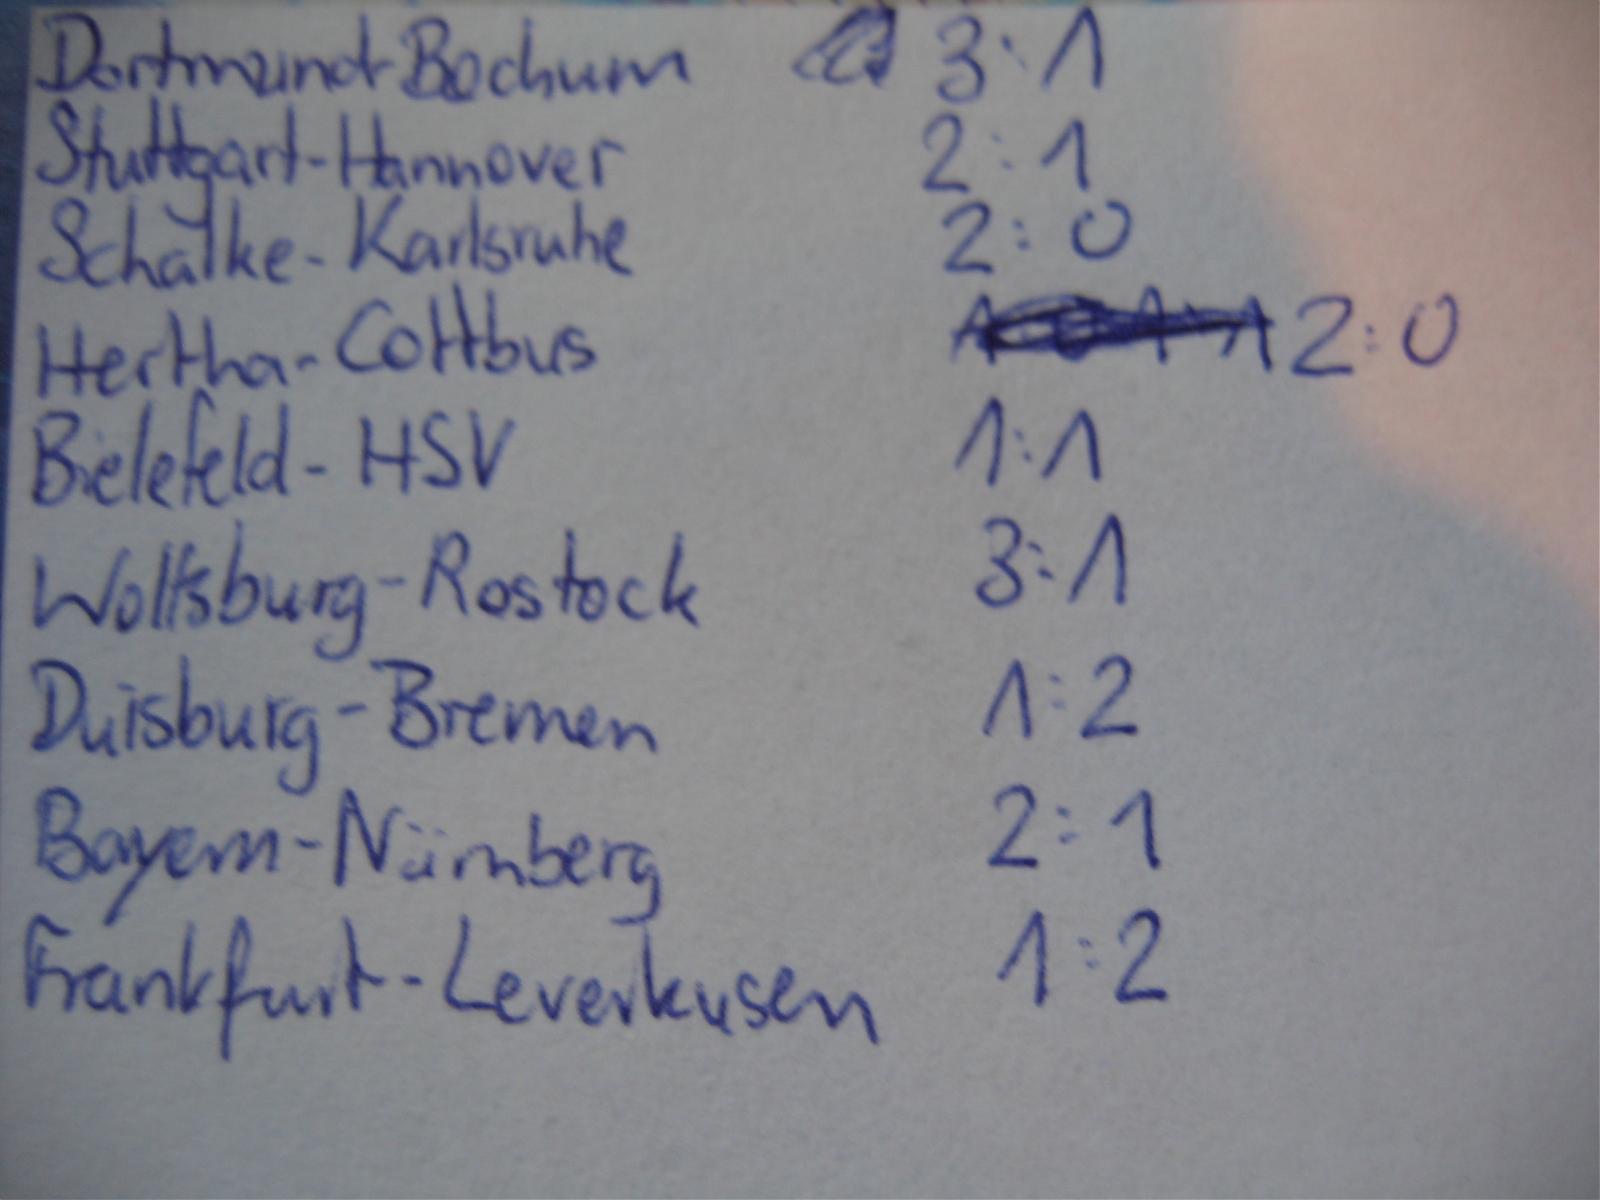 Dortmund-Bochum 3:1
Stuttgart-Hannover 2:1
Schalke-Karlsruhe 2:0
Hertha-Cottbus 2:0
Bielefeld-HSV 1:1
Wolfsburg-Rostock 3:1
Duisburg-Bremen 1:2
Bayern-Nürnberg 2:1
Frankfurt-Leverkusen 1:2